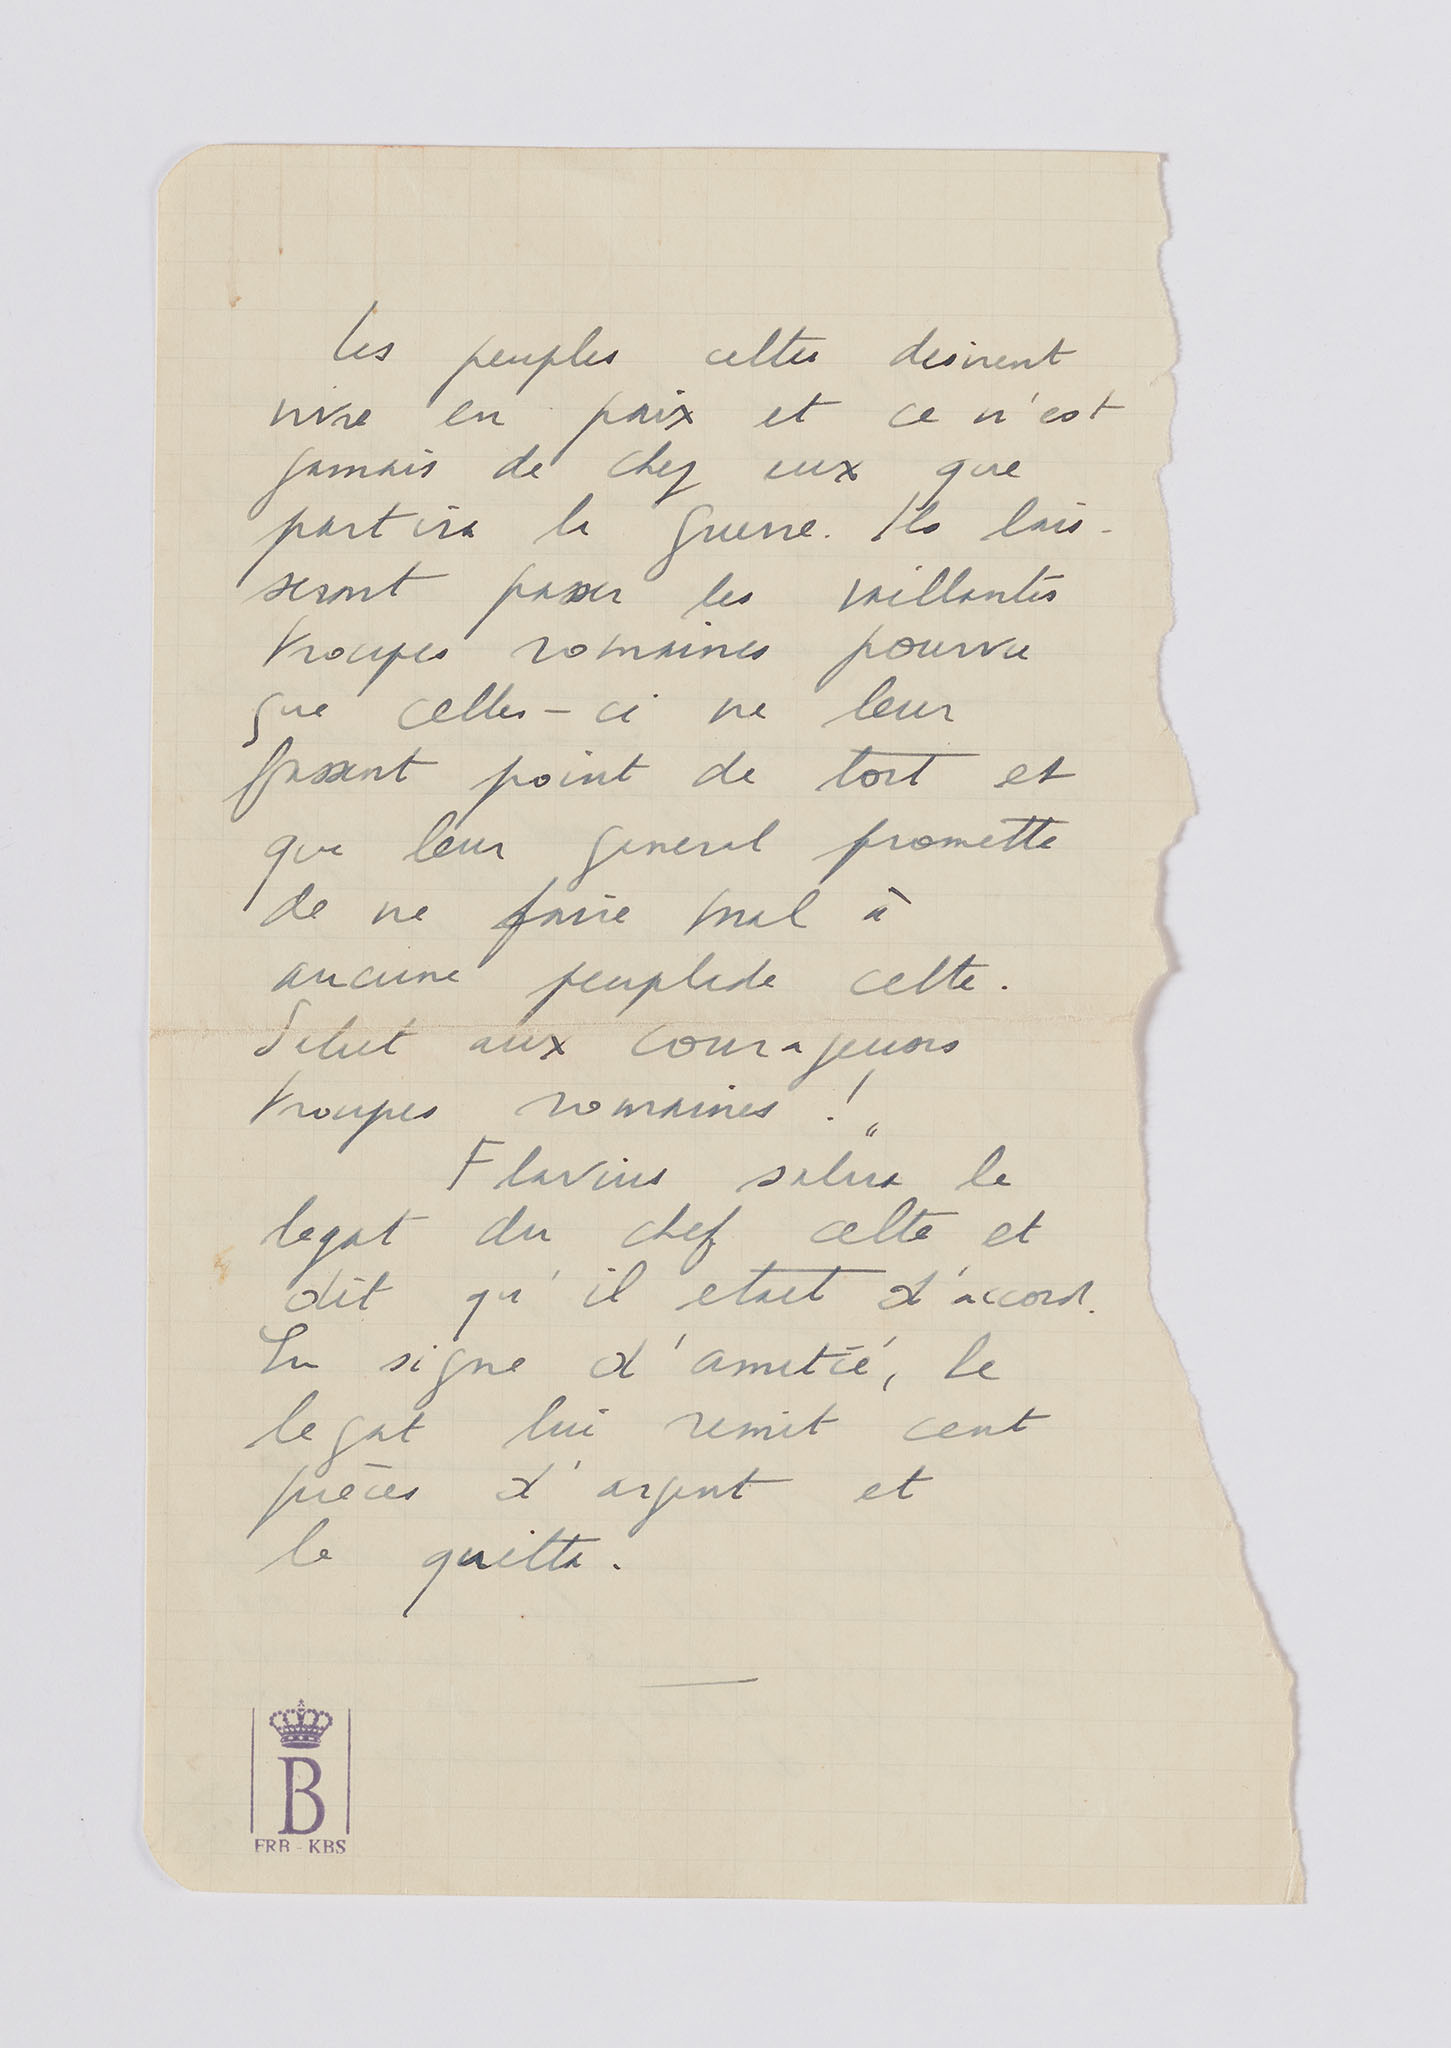 Les peuples celtes desirent
vivre en paix et ce n'est
jamais de chez eux que
partira la guerre. Ils lais-
seront passer les vaillantes
troupes romaines pourvu
que celles-ci ne leur
fassent point de tort et
que leur general promette
de ne faire mal à
aucune peuplade celte.
Salut aux courageuses
troupes romaines !"
Flavius salua le
legat du chef celte et
dit qu'il etait d'accord.
En signe d'amitié, le
legat lui remit cent
pièces d'argent et
le quitta.
B
FRB - KBS